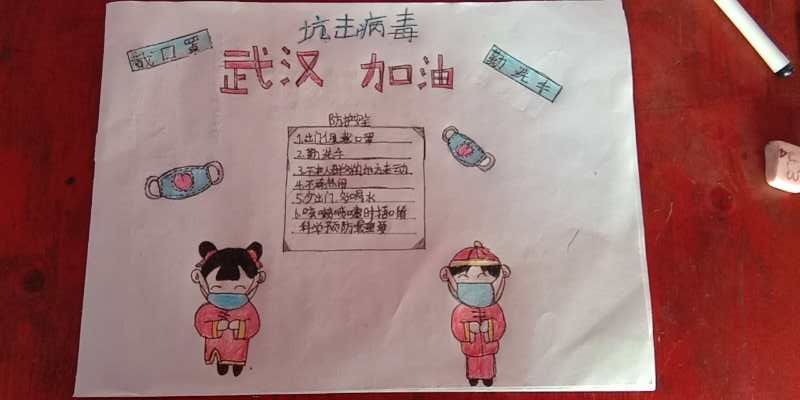 抗击病毒
戴口罩
武汉 加油
勤洗手
防护
1.出门佩戴口罩
2.勤洗手
3.不去人群的地方走动
4.不
5.少出门.多喝水
6.咳嗽喷嚏时捂口鼻
科学预防最重要